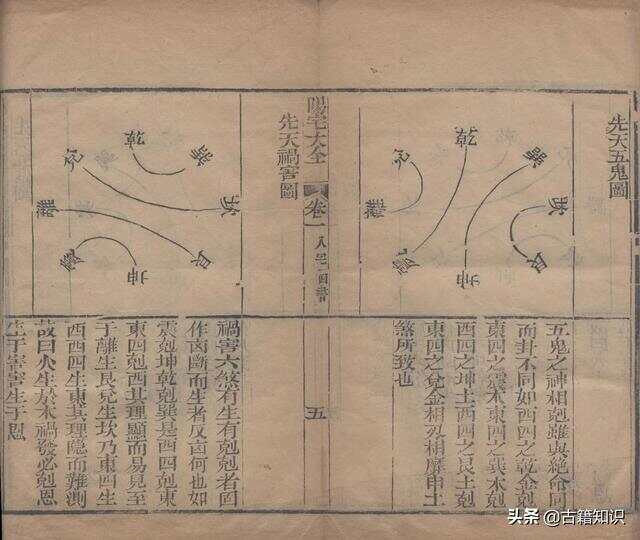 先天五鬼圖
乾
巽
兌
坎
離
艮
震
坤
五鬼之神相剋雖與絶命同
而卦不同如西四之乾金剋
東四之震木東四之巽木剋
西四之坤土西四之艮土剋
東四之兌金相
煞所致也
陽宅大全
卷一
八宅
五
先天禍害圖
乾
巽
兌
坎
離
艮
震
坤
禍害六煞有生有剋剋者因
作凶斷而生者反凶何也如
震剋坤乾剋巽是西四剋東
東四剋西其理顯而易見至
于離生艮兌生坎乃東四生
西西四生東其理隱而難測
故曰火生於木禍發必剋恩
生于害害生于恩
头条 @古籍知识